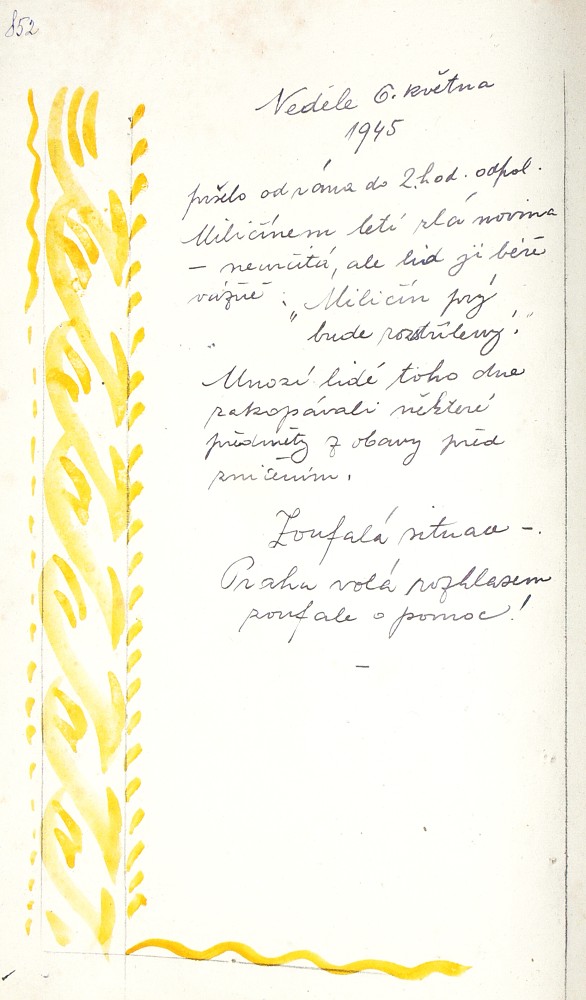 852
Neděle 6. května
1945
pršelo od rána do 2. hod. odpol.
Miličínem letí zlá novina
– neurčitá, ale lid ji béře
vážně: „Miličín prý
bude rozstřílený!“
Mnozí lidé toho dne
zakopávali některé
předměty z obavy před
zničením.
Zoufalá situace –.
Praha volá rozhlasem
zoufale o pomoc!
–